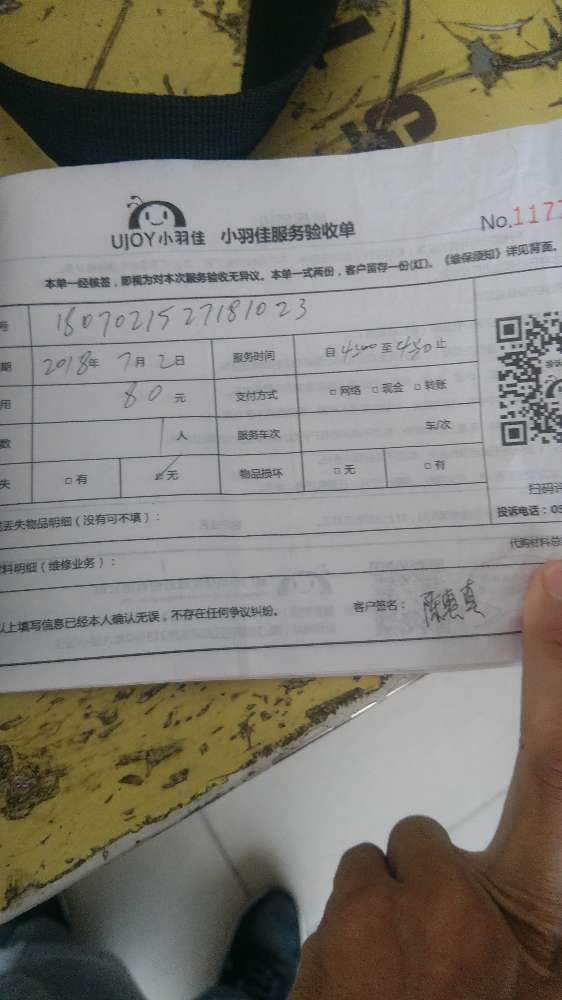 UJOY小羽佳 小羽佳服务验收单 No.117
本单一经核签，即视为对本次服务验收无异议。本单一式两份，客户留存一份(红)。《维保须知》详见背面。
号 1807021527181023
期 2018年7月2日 服务时间 自4:00至4:30止
用 80元 支付方式 □网络 □现金 □转账
数 人 服务车次 车/次
失 □有 □无 物品损坏 □无 □有
丢失物品明细（没有可不填）：
扫码
投诉电话：05
料明细（维修业务）：
代购材料总
以上填写信息已经本人确认无误，不存在任何争议纠纷。 客户签名：陈惠真